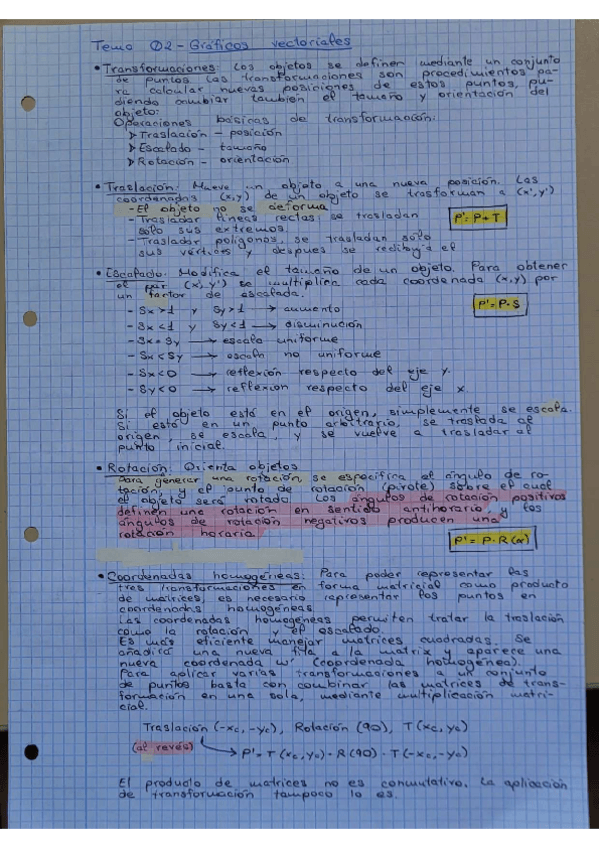 Tema 02 - Gráficos vectoriales
• Transformaciones: Los objetos se definen mediante un conjunto
de puntos. Las transformaciones son procedimientos pa-
ra calcular nuevas posiciones de estos puntos, pu-
diendo cambiar también el tamaño y orientación del
objeto.
Operaciones básicas de transformación:
➤ Traslación - posición
➤ Escalado - tamaño
➤ Rotación - orientación
• Traslación: Mueve un objeto a una nueva posición. Las
coordenadas (x,y) de un objeto se trasforman a (x',y')
- El objeto no se deforma
- Trasladar líneas rectas: se trasladan
solo sus extremos.
P' = P + T
- Trasladar polígonos, se trasladan sólo
sus vértices y despues se redibuja el
• Escalado: Modifica el tamaño de un objeto. Para obtener
el par (x',y') se multiplica cada coordenada (x,y) por
un factor de escalada.
P' = P · S
- Sx > 1 y Sy > 1 → aumento
- Sx < 1 y Sy < 1 → disminución
- Sx = Sy → escala uniforme
- Sx < Sy → escala no uniforme
- Sx < 0 → reflexión respecto del eje y.
- Sy < 0 → reflexion respecto del eje x.
Si el objeto está en el origen, simplemente se escala.
Si está en un punto arbitrario, se traslada al
origen, se escala, y se vuelve a trasladar al
punto inicial.
• Rotación: Orienta objetos
Para generar una rotación, se especifica el ángulo de ro-
tación, y el punto de rotación (pivote) sobre el cual
el objeto será rotado. Los ángulos de rotación positivos
definen una rotación en sentido antihorario, y los
ángulos de rotación negativos producen una
rotación horaria.
P' = P · R(α)
• Coordenadas homogéneas: Para poder representar las
tres transformaciones en forma matricial como producto
de matrices es necesario representar los puntos en
coordenadas homogéneas
Las coordenadas homogéneas permiten tratar la traslación
como la rotación y el escalado.
Es más eficiente manejar matrices cuadradas. Se
añadirá una nueva fila a la matrix y aparece una
nueva coordenada w' (coordenada homogénea).
Para aplicar varias transformaciones a un conjunto
de puntos basta con combinar las matrices de trans-
formación en una sola, mediante multiplicación matri-
cial.
Traslación (-xc, -yc), Rotación (90), T(xc, yc)
(al revés) → P' = T(xc, yc) · R(90) · T(-xc, -yc)
El producto de matrices no es conmutativo. La aplicación
de transformación tampoco lo es.